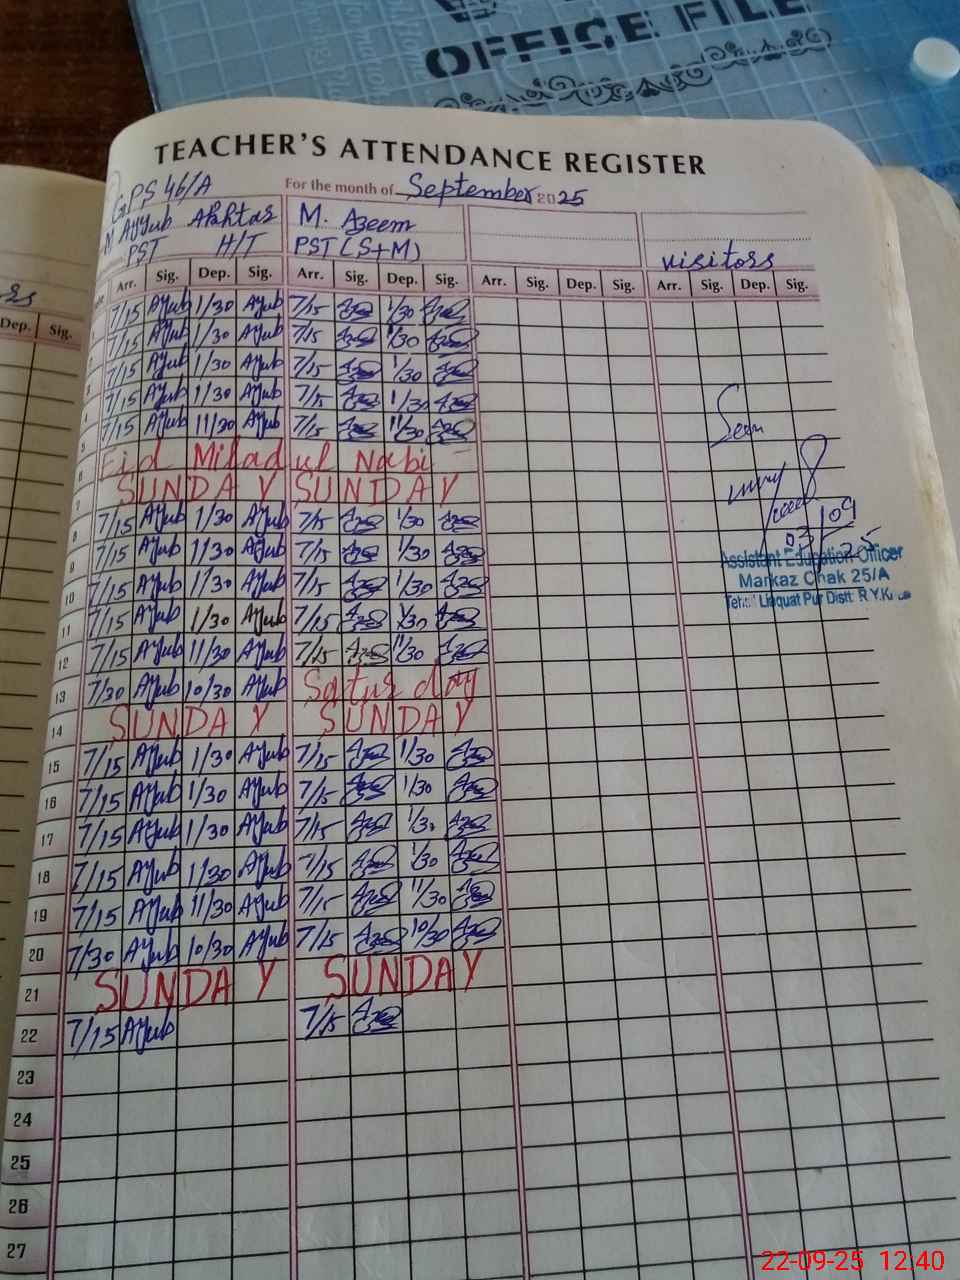 OFFICE FILE
TEACHER'S ATTENDANCE REGISTER
GPS 46/A For the month of September 2025
M Ayyub Akhtar M. Azeem
PST H/T PST (S+M) visitors
Arr. Sig. Dep. Sig. Arr. Sig. Dep. Sig. Arr. Sig. Dep. Sig. Arr. Sig. Dep. Sig.
Dep. Sig.
7/15 Ayub 1/30 Ayub 7/15 1/30
2 7/15 Ayub 1/30 Ayub 7/15 1/30
3 7/15 Ayub 1/30 Ayub 7/15 1/30
4 7/15 Ayub 1/30 Ayub 7/15 1/30
5 7/15 Ayub 11/30 Ayub 7/15 11/30
6 Eid Milad ul Nabi
7 SUNDAY SUNDAY
8 7/15 Ayub 1/30 Ayub 7/15 1/30
9 7/15 Ayub 1/30 Ayub 7/15 1/30
10 7/15 Ayub 1/30 Ayub 7/15 1/30
11 7/15 Ayub 1/30 Ayub 7/15 1/30
12 7/15 Ayub 11/30 Ayub 7/15 11/30
13 7/30 Ayub 10/30 Ayub Saturday
14 SUNDAY SUNDAY
15 7/15 Ayub 1/30 Ayub 7/15 1/30
16 7/15 Ayub 1/30 Ayub 7/15 1/30
17 7/15 Ayub 1/30 Ayub 7/15 1/30
18 7/15 Ayub 1/30 Ayub 7/15 1/30
19 7/15 Ayub 11/30 Ayub 7/15 11/30
20 7/30 Ayub 10/30 Ayub 7/15 10/30
21 SUNDAY SUNDAY
22 7/15 Ayub 7/15
23
24
25
26
27
Seen
03/09
25
Assistant Education Officer
Markaz Chak 25/A
Teh: Liaquat Pur Distt: R.Y.K.
22-09-25 12:40